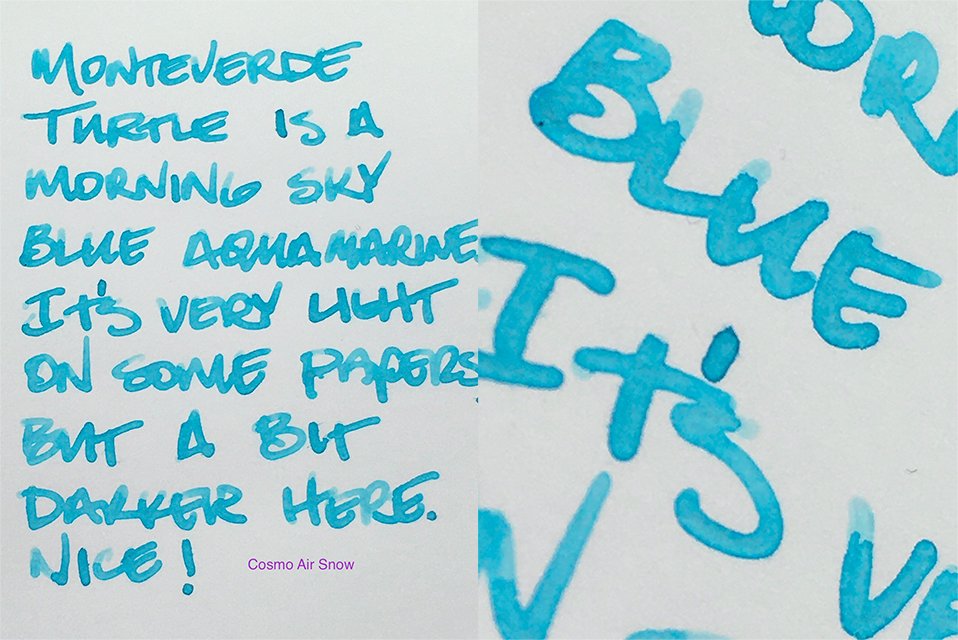 MONTEVERDE
TURTLE IS A
MORNING SKY
BLUE AQUAMARINE
IT'S VERY LIGHT
ON SOME PAPERS
BUT A BIT
DARKER HERE.
NICE!
Cosmo Air Snow
OR
BLUE
IT'S
V
VE